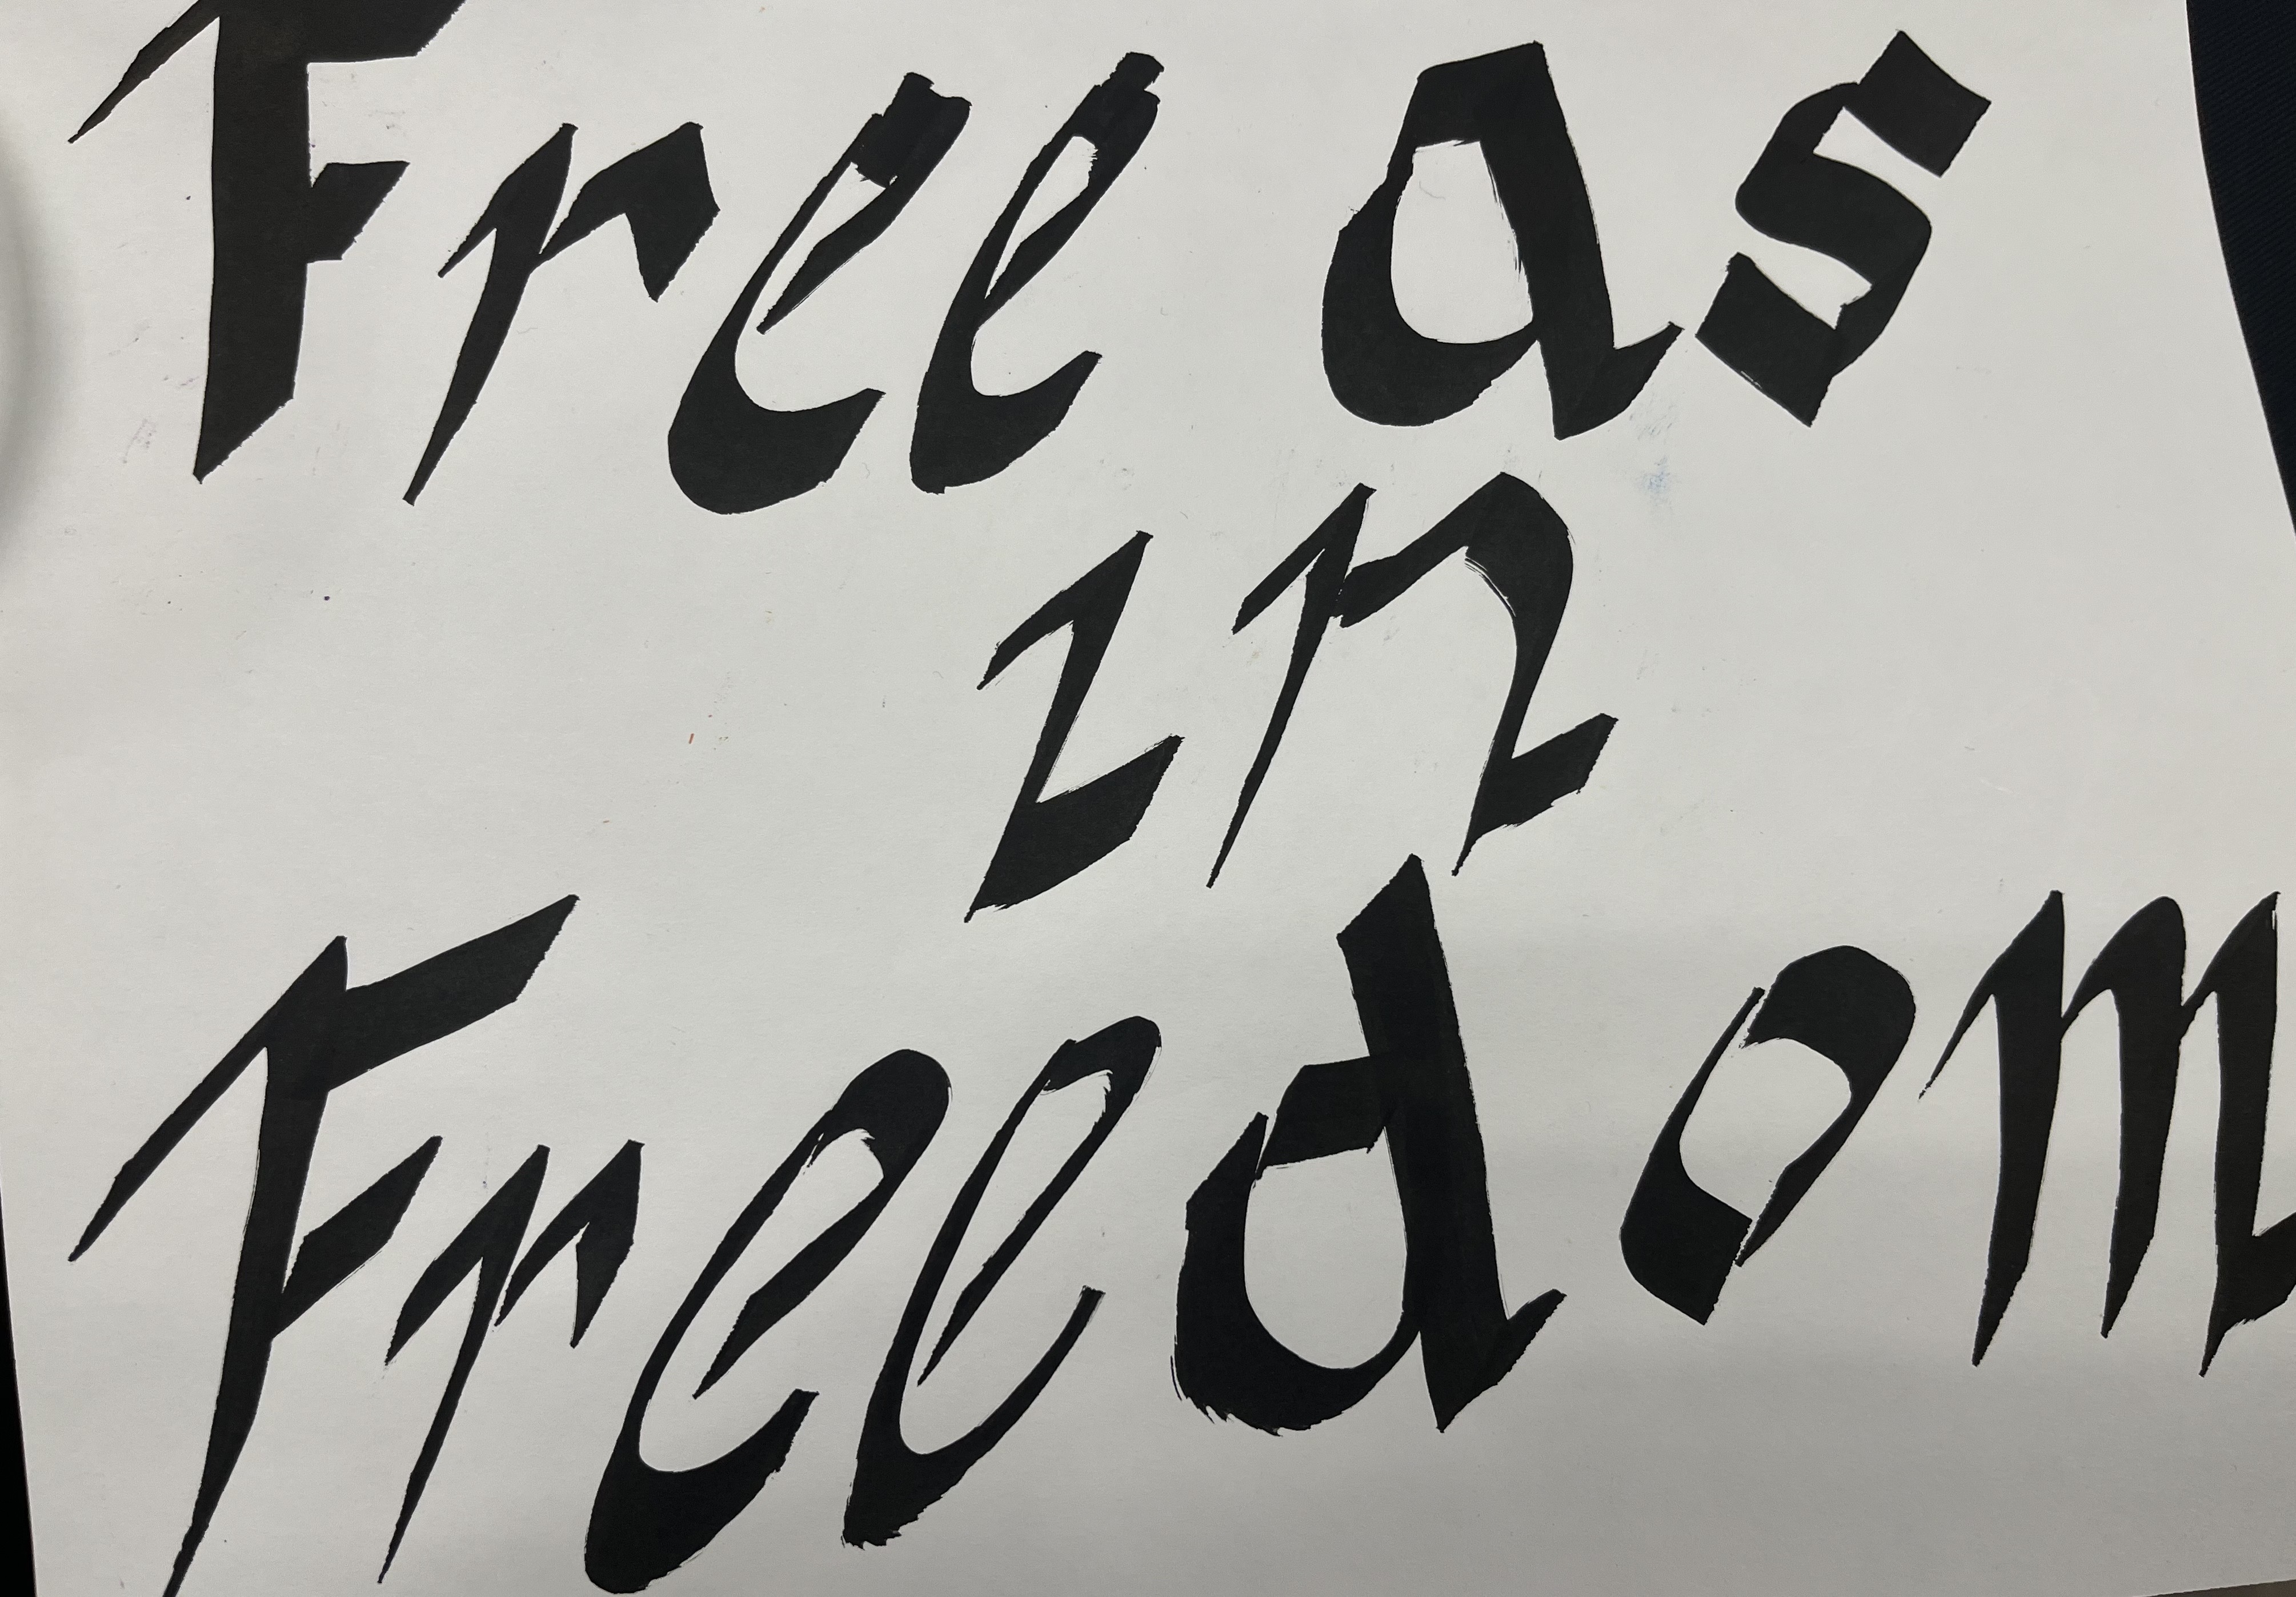 Free as
in
Freedom